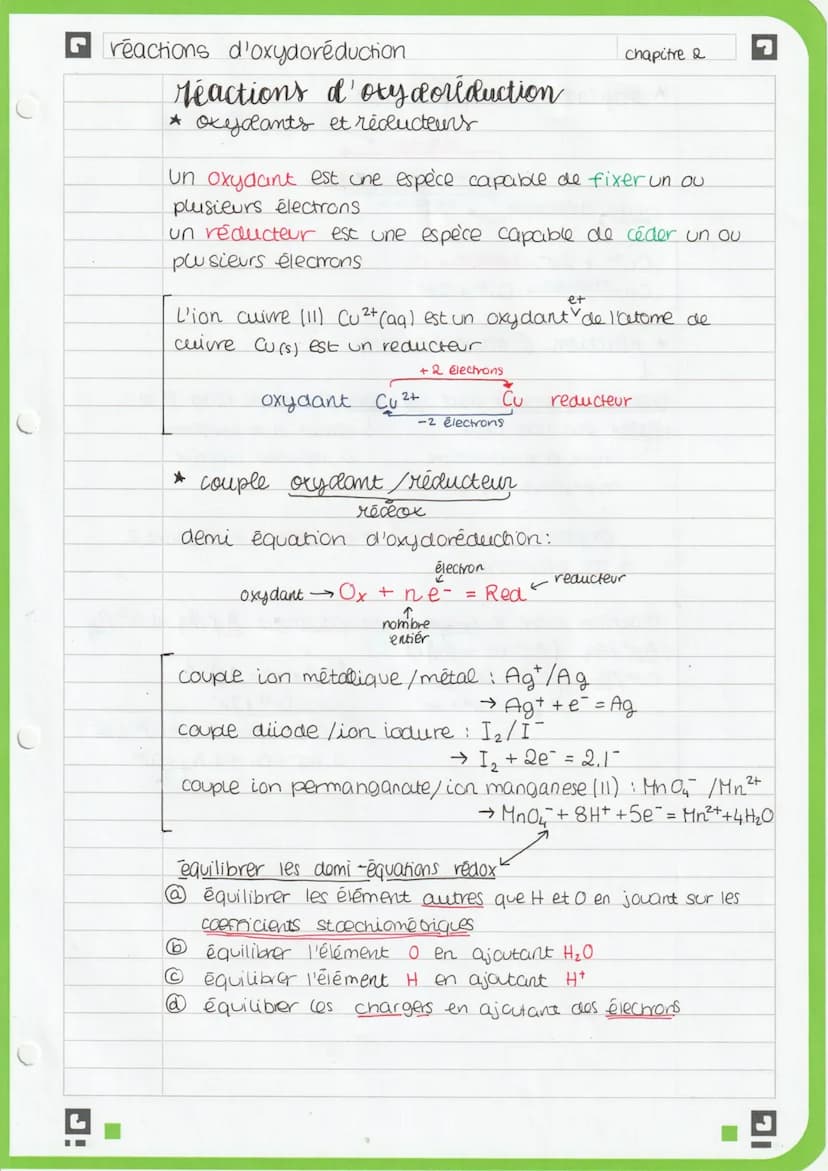 réactions d'oxydoréduction
chapitre 2
réactions d'oxydoréduction
* oxydants et réducteurs
un oxydant est une espèce capable de fixer un ou
plusieurs électrons
un réducteur est une espèce capable de céder un ou
plusieurs électrons
et
L'ion cuivre (II) Cu²⁺(aq) est un oxydant de l'atome de
cuivre Cu(s) est un reducteur
+2 électrons
oxydant Cu²⁺ Cu reducteur
-2 électrons
* couple oxydant/réducteur
rédox
demi équation d'oxydoréduction:
électron
oxydant → Ox + n e⁻ = Red ← reducteur
nombre
entiér
couple ion métallique/métal : Ag⁺/Ag
→ Ag⁺ + e⁻ = Ag
couple diiode/ion iodure : I₂/I⁻
→ I₂ + 2e⁻ = 2.I⁻
couple ion permanganate/ion manganese (II) : MnO₄⁻ /Mn²⁺
→ MnO₄⁻ + 8H⁺ + 5e⁻ = Mn²⁺ + 4H₂O
équilibrer les demi-équations rédox
ⓐ équilibrer les élément autres que H et O en jouant sur les
coefficients stœchiométriques
ⓑ équilibrer l'élément O en ajoutant H₂O
ⓒ équilibrer l'élément H en ajoutant H⁺
ⓓ équilibrer les chargers en ajoutant des électrons